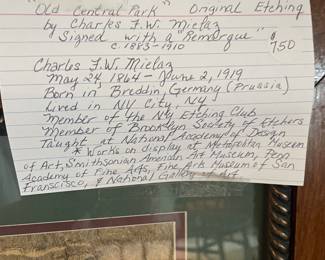 "Old Central Park" Original Etching
by Charles F.W. Mielaz
Signed with a "Remarque"
c. 1883-1910
$750
Charles F.W. Mielaz
May 24, 1864 - June 2, 1919
Born in Breddin, Germany (Prussia)
Lived in NY City, NY
Member of the NY Etching Club
Member of Brooklyn Society of Etchers
Taught at National Academy of Design
* Works on display at Metropolitan Museum
of Art, Smithsonian American Art Museum, Penn
Academy of Fine Arts, Fine Arts Museum of San
Franscisco, & National Gallery of Art